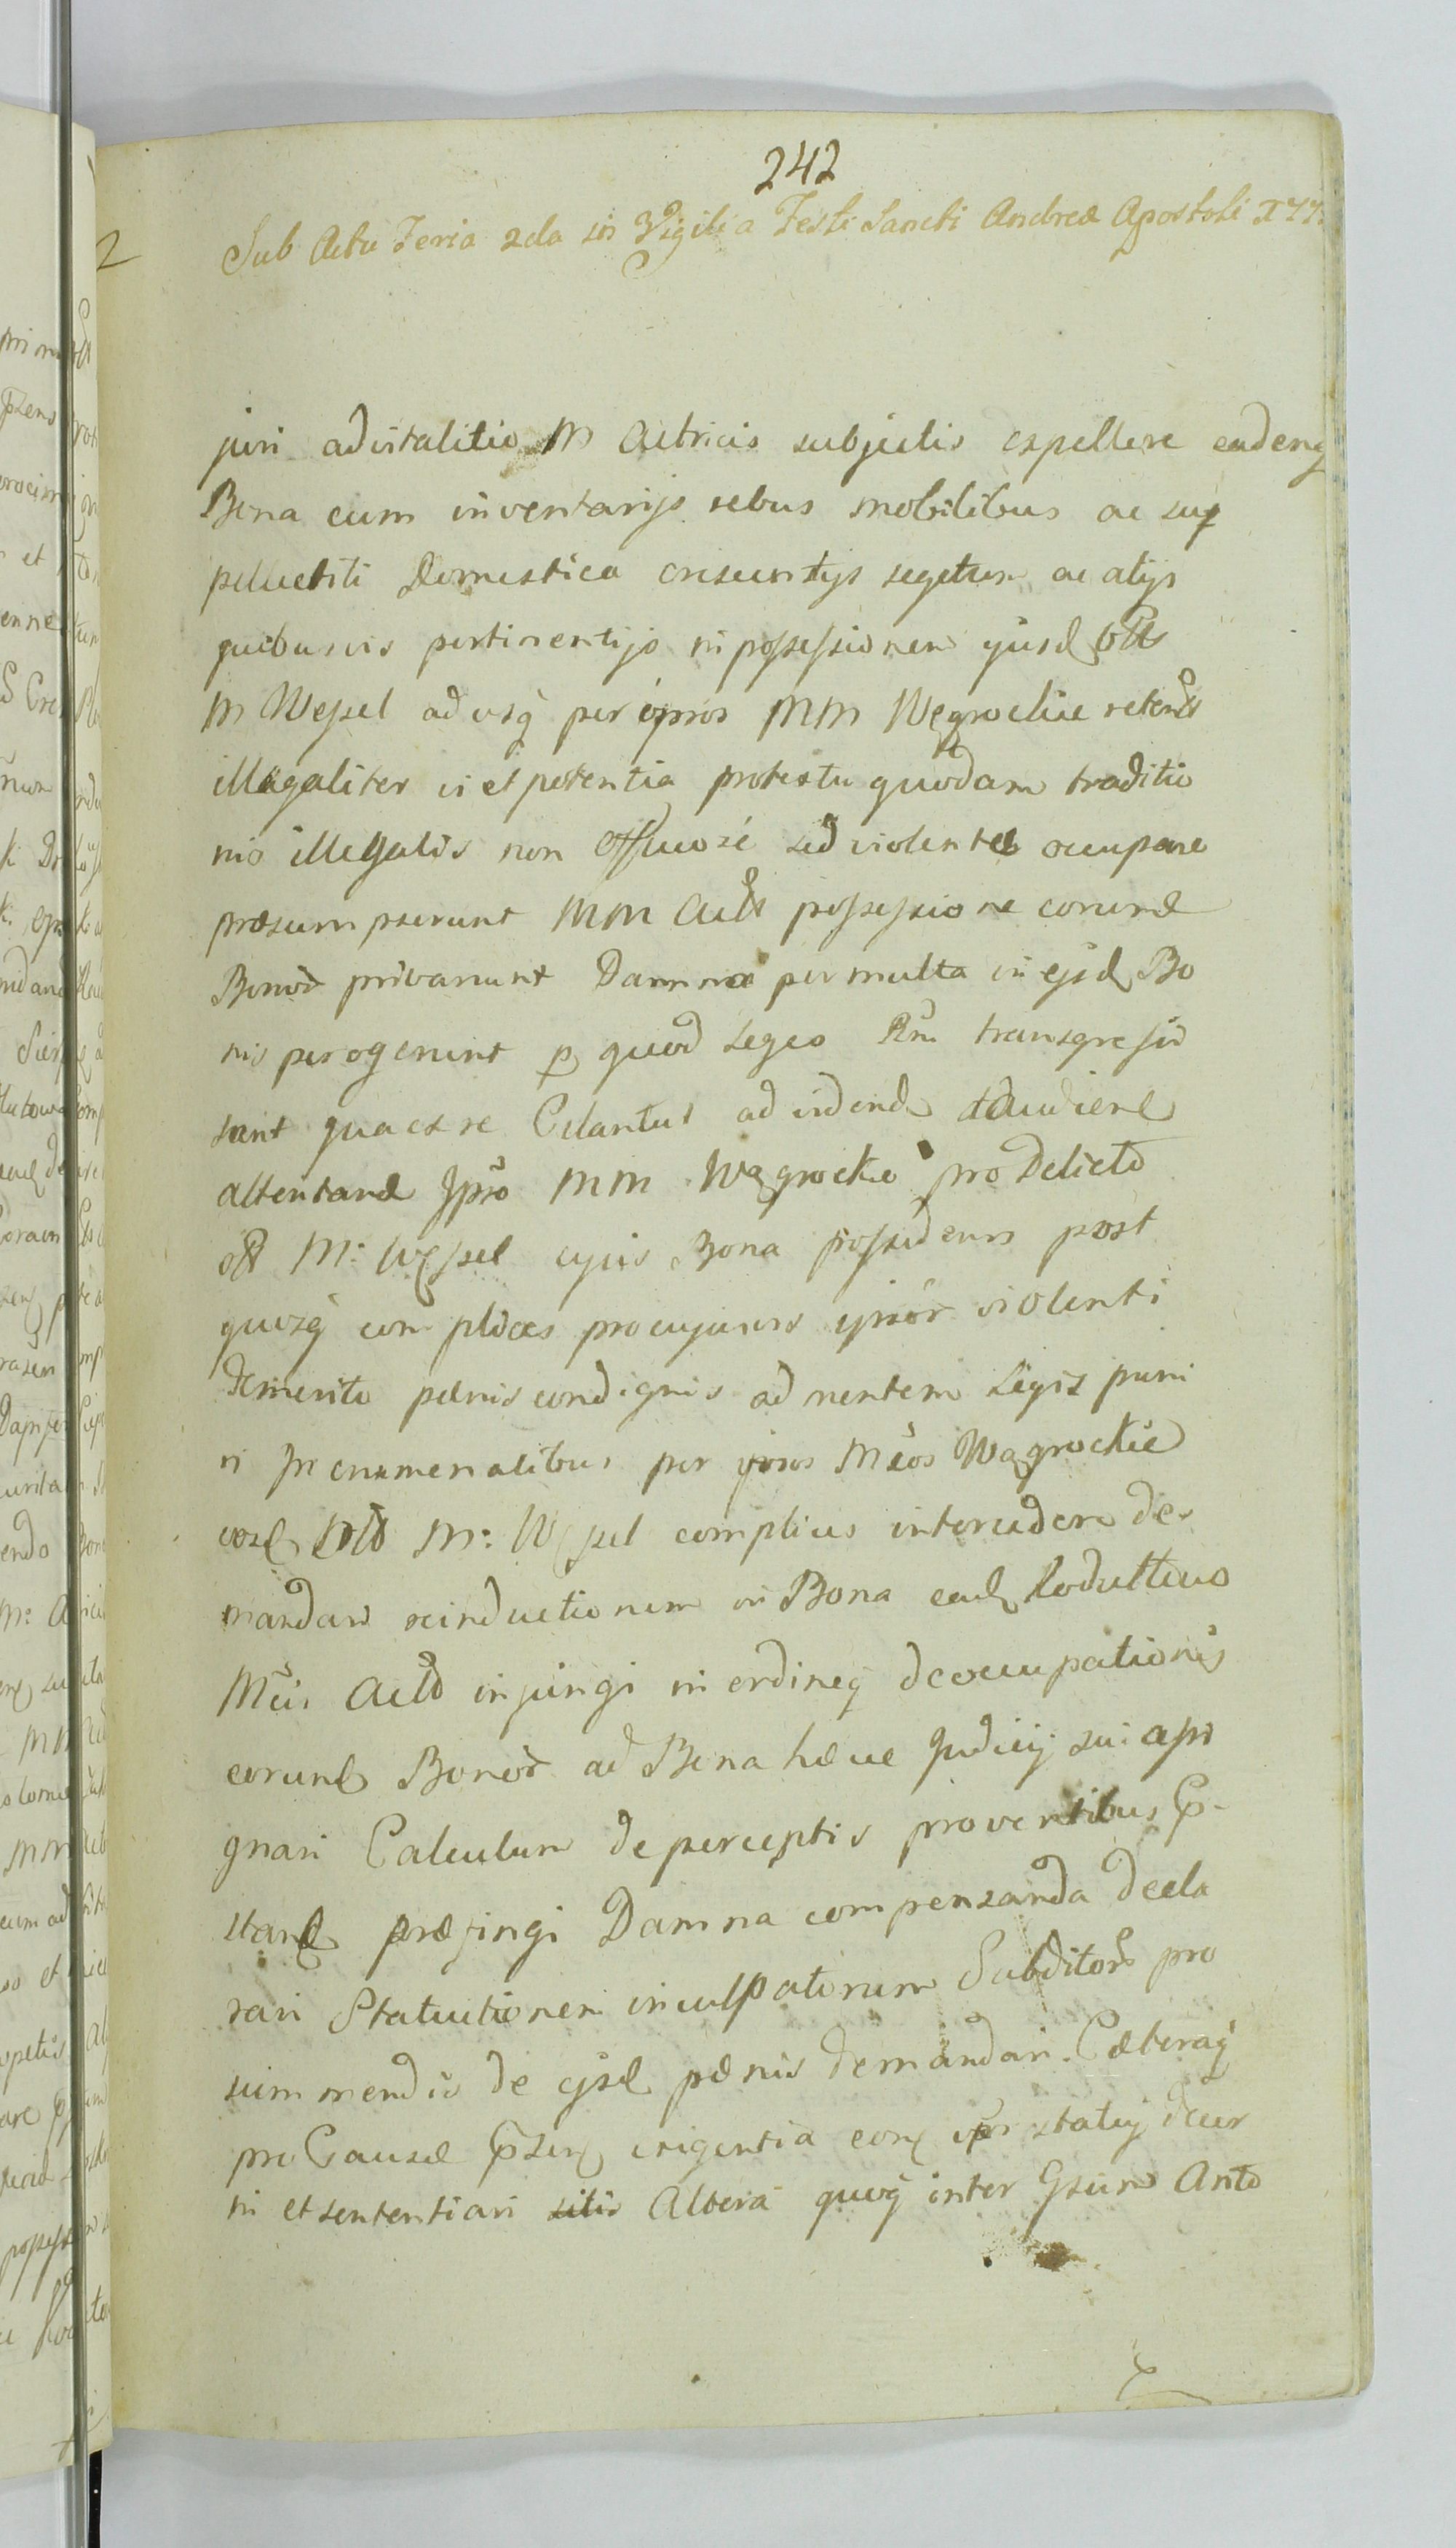 242
Sub Actu Feria 2da in Vigilia Festi Sancti Andreæ Apostoli 177
juri advitalitio M Actricis subjectis expellere eademq
Bona cum inventarijs rebus mobilibus ac sup
pellectili Domestica crescentijs segetum ac alijs
quibusvis pertinentijs in possessionem ejusd
M Wessel adusq per ipsos MM Węgrockie
illegaliter vi et potentia protextu quodam traditio
nis illegalis non sed violenter occupare
præsumpserunt MM possessione eorund
Bonor privarunt Damna permulta in ejsd Bo
nis perogerunt p quod Leges Rni transgressi
sunt qua ex re Citantur ad vidend
attentand Ipso MM Węgrockie pro Delicto
M: Wessel cujus Bona possidens post
quosq complices pro cujusvis ipsor violenti
demerito pænis condignis ad mentem Legis puni
ri per ipsos Mcos Węgrockie
M: Wessel complices intercedere de
mandari reinductionem in Bona ead
Mcis injungi in ordineq deoccupationis
eorund Bonor ad Bona hæcce Judicij sui assi
gnari Calculum de perceptis proventibus
præfingi Damna compensanda decla
rari Statuitionem inculpatorum Subditor pro
summendis de ejsd pænis demandari Cæteraq
pro Causæ exigentia statuj decer
ni et sententiari Altera quoq inter Gsum Anto